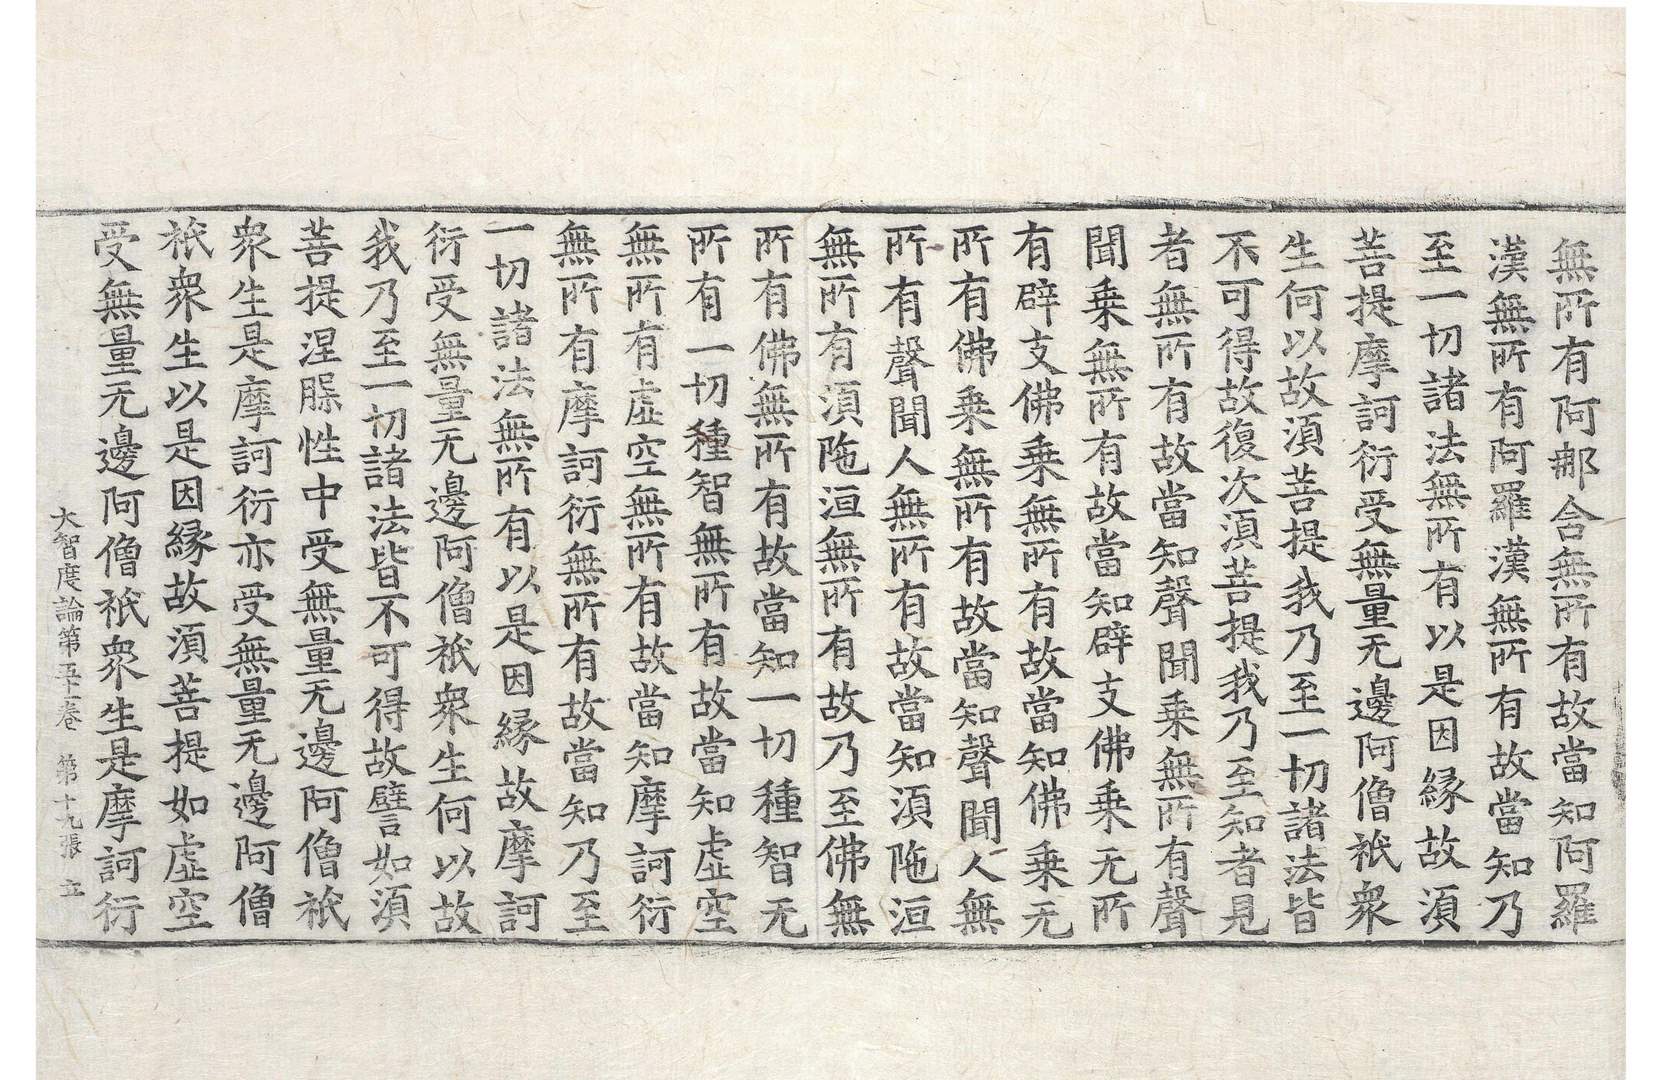 無所有阿那含無所有故當知阿羅
漢無所有阿羅漢無所有故當知乃
至一切諸法無所有以是因緣故湏
菩提摩訶衍受無量无邊阿僧祇衆
生何以故湏菩提我乃至一切諸法皆
不可得故復次湏菩提我乃至知者見
者無所有故當知聲聞乗無所有聲
聞乗無所有故當知辟支佛乗无所
有辟支佛乗無所有故當知佛乗无
所有佛乗無所有故當知聲聞人無
所有聲聞人無所有故當知湏陁洹
無所有湏陁洹無所有故乃至佛無
所有佛無所有故當知一切種智无
所有一切種智無所有故當知虛空
無所有虛空無所有故當知摩訶衍
無所有摩訶衍無所有故當知乃至
一切諸法無所有以是因緣故摩訶
衍受無量无邊阿僧祇衆生何以故
我乃至一切諸法皆不可得故譬如湏
菩提涅槃性中受無量无邊阿僧祇
衆生是摩訶衍亦受無量无邊阿僧
祇衆生以是因緣故湏菩提如虛空
受無量无邊阿僧祇衆生是摩訶衍
大智度論第五十一卷 第十九張 立